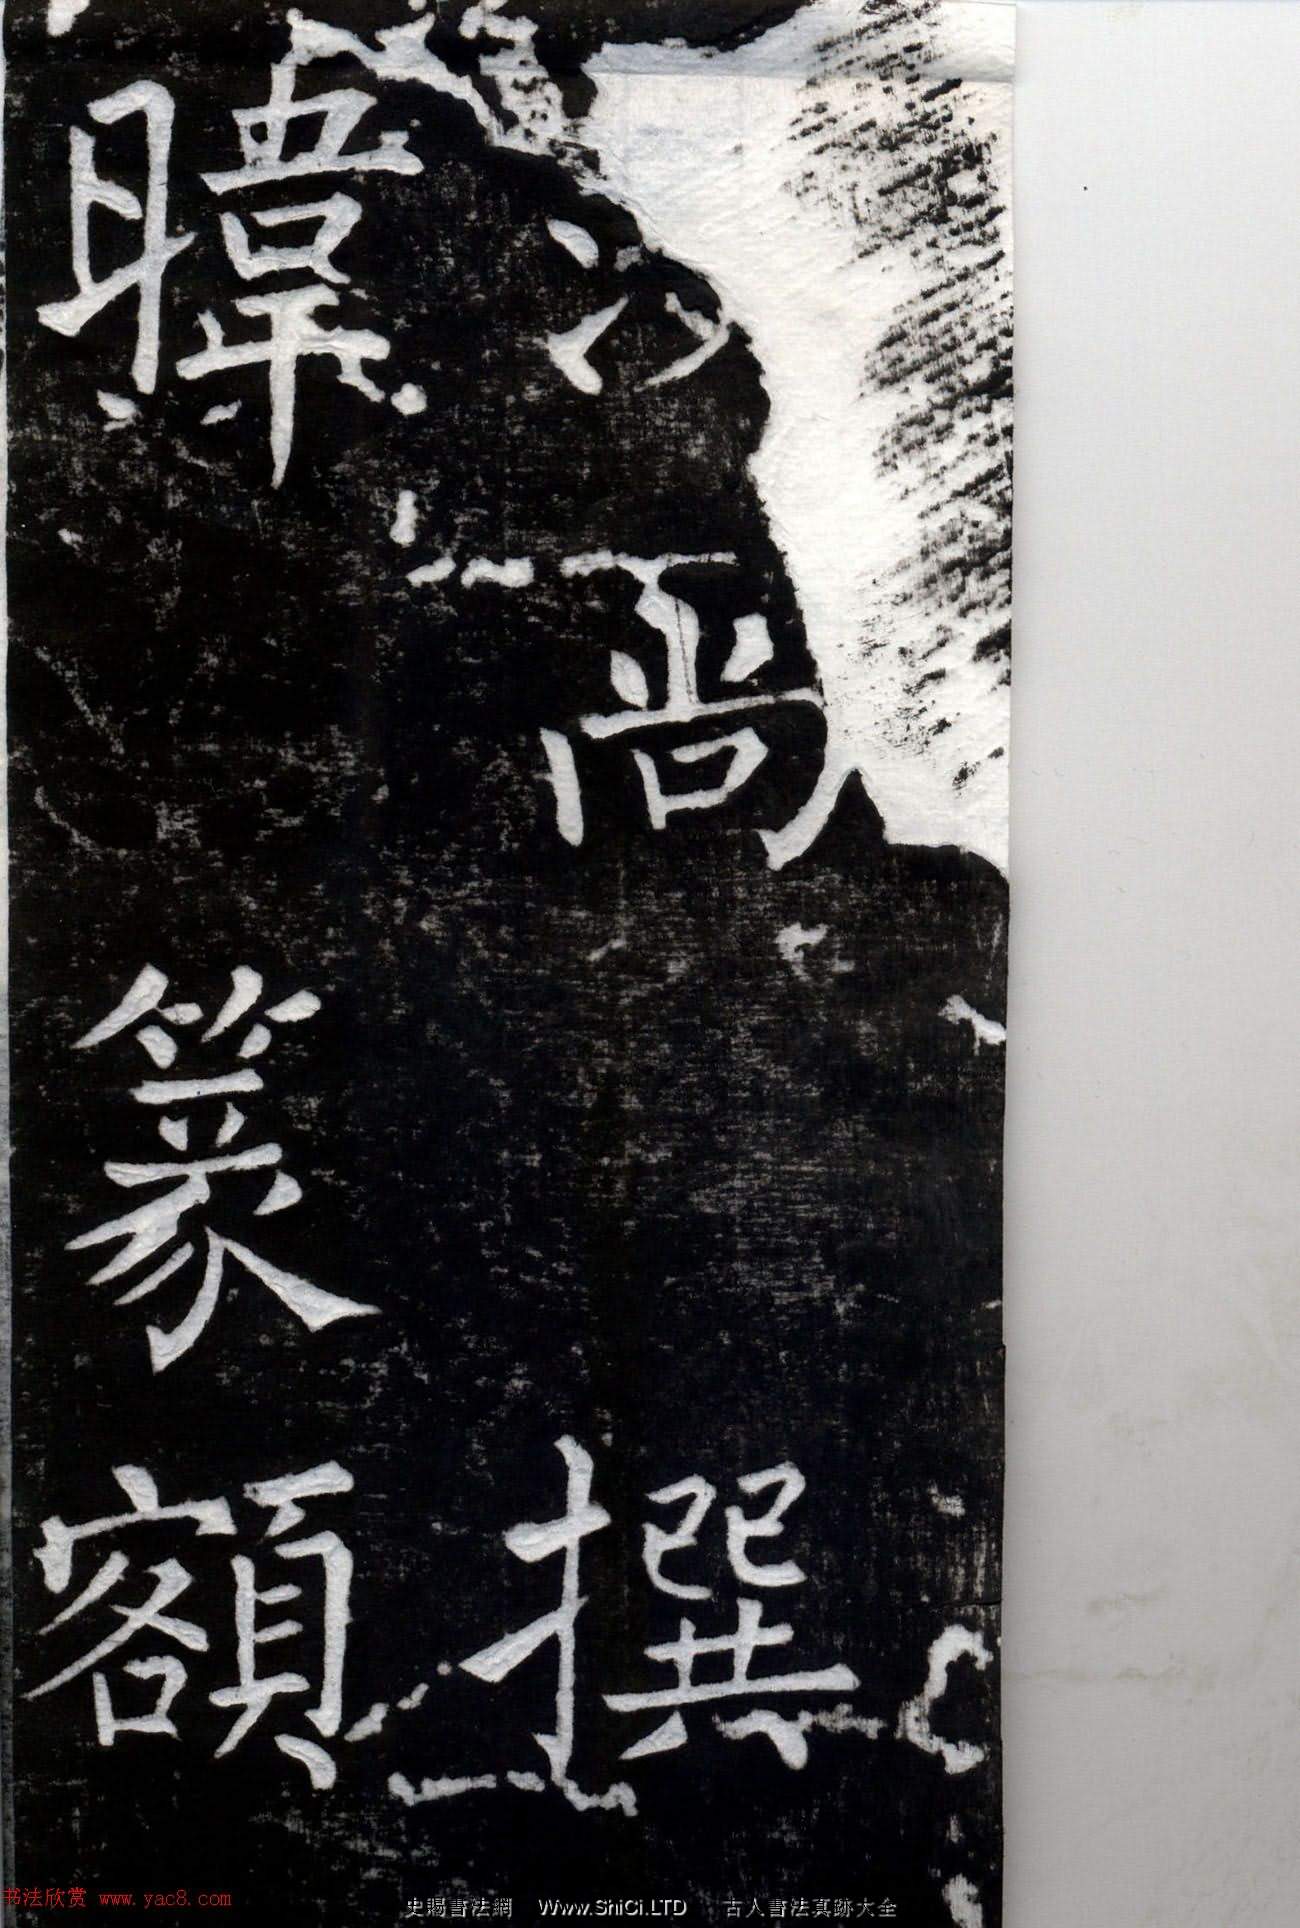 尚撰
暐篆額
书法欣赏 www.yac8.com
史賜書法網 Www.ShiCi.LTD 古人書法真跡大全